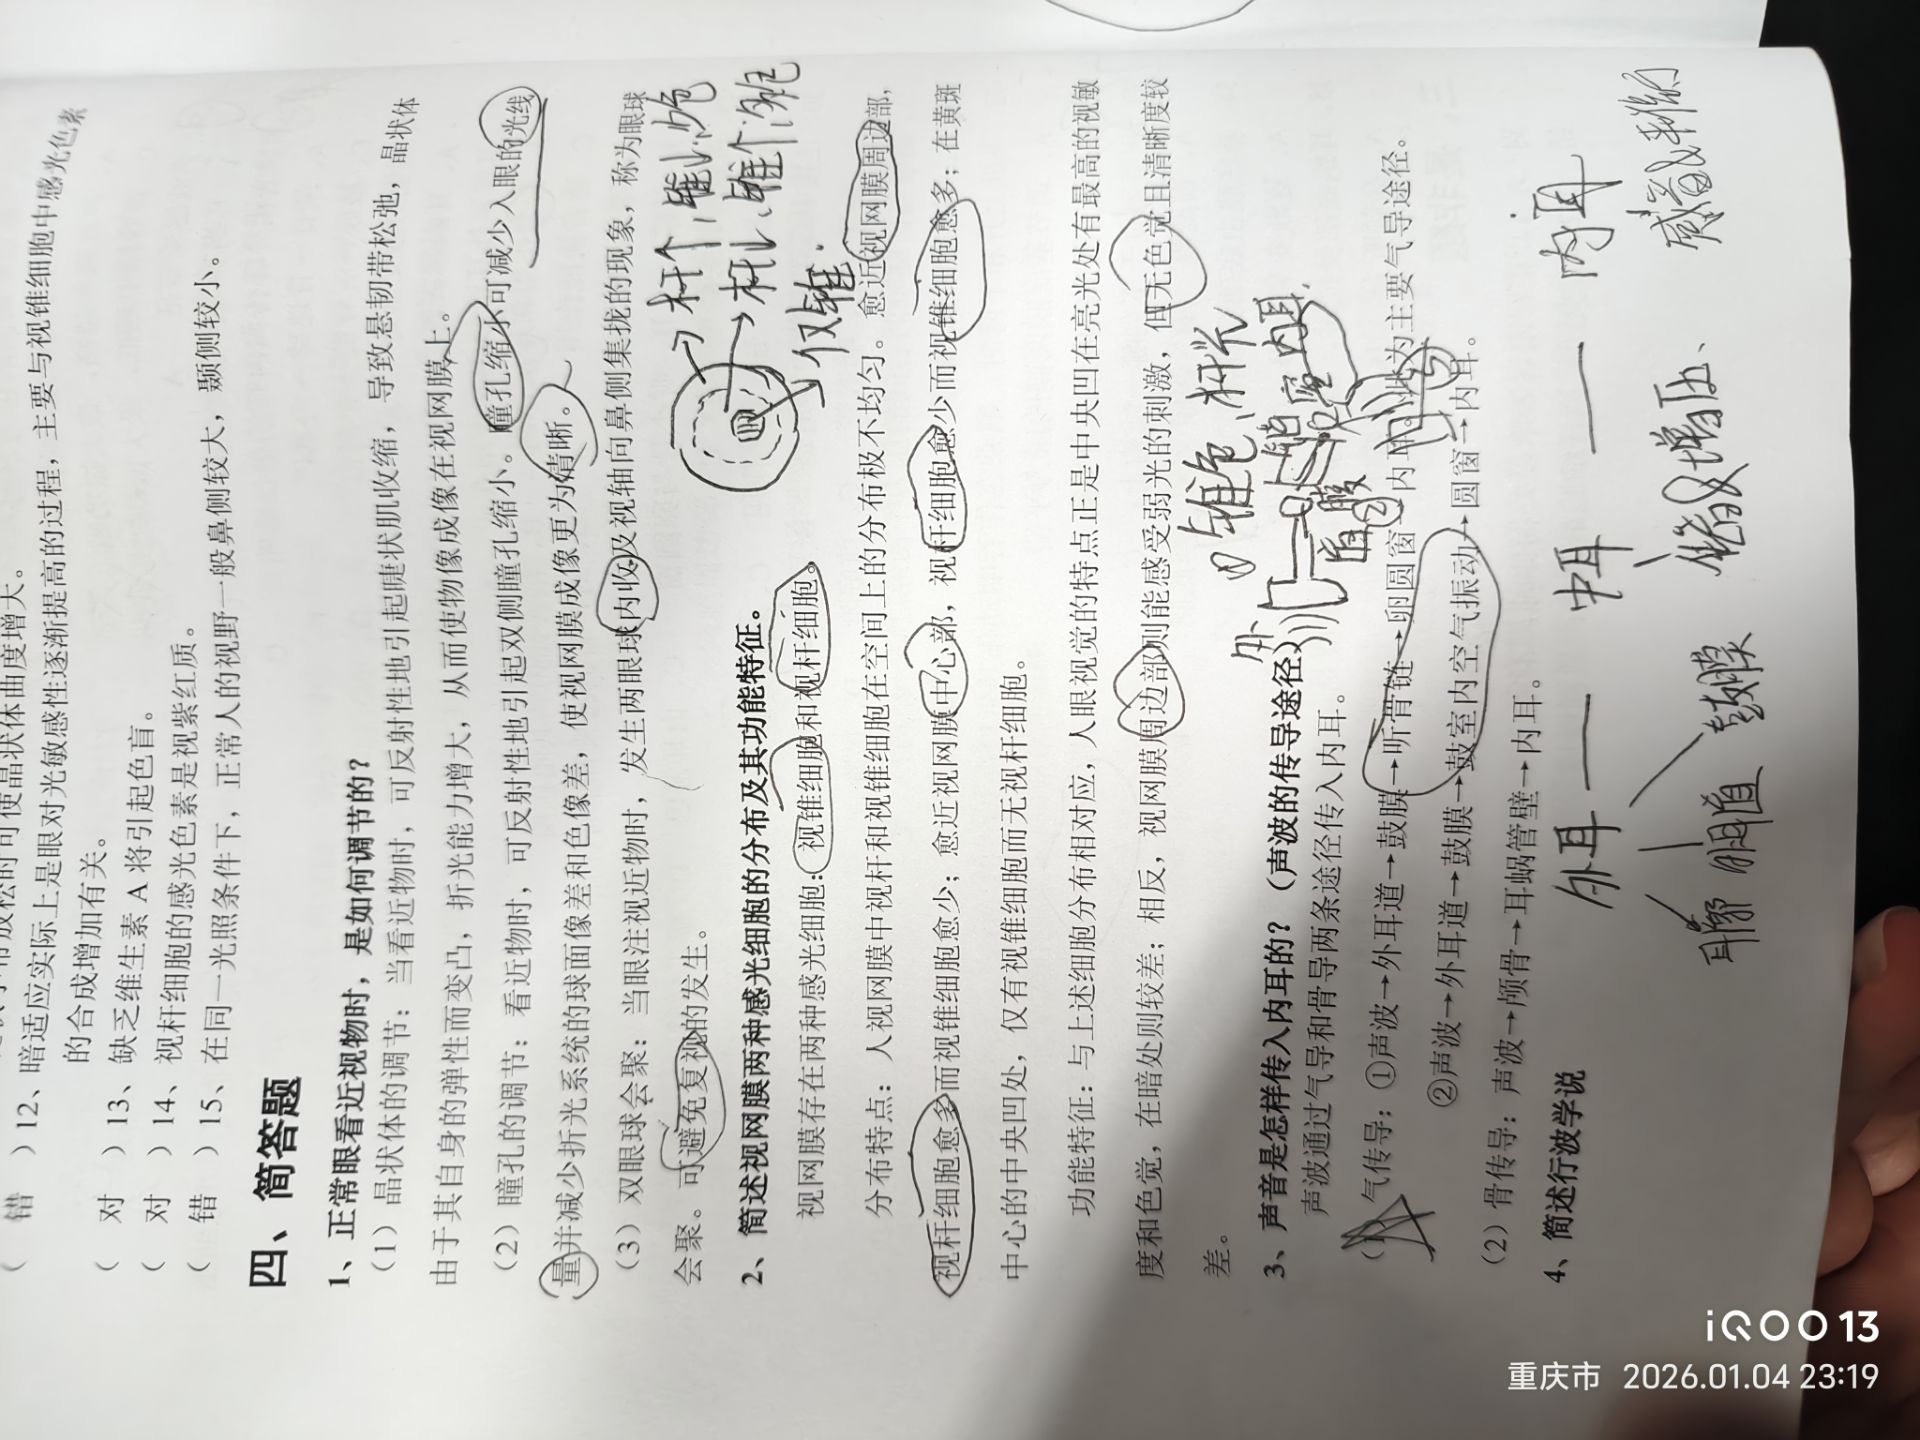 可使晶状体曲度增大。
( 错 )12、暗适应实际上是眼对光敏感性逐渐提高的过程，主要与视锥细胞中感光色素
的合成增加有关。
( 对 )13、缺乏维生素 A 将引起色盲。
( 对 )14、视杆细胞的感光色素是视紫红质。
( 错 )15、在同一光照条件下，正常人的视野一般鼻侧较大，颞侧较小。
四、简答题
1、正常眼看近视物时，是如何调节的？
(1) 晶状体的调节：当看近物时，可反射性地引起睫状肌收缩，导致悬韧带松弛，晶状体
由于其自身的弹性而变凸，折光能力增大，从而使物像成像在视网膜上。
(2) 瞳孔的调节：看近物时，可反射性地引起双侧瞳孔缩小。瞳孔缩小可减少入眼的光线
量并减少折光系统的球面像差和色像差，使视网膜成像更为清晰。
(3) 双眼球会聚：当眼注视近物时，发生两眼球内收及视轴向鼻侧集拢的现象，称为眼球
会聚。可避免复视的发生。
杆个，锥↓，色
2、简述视网膜两种感光细胞的分布及其功能特征。
杆↓，锥个，色
视网膜存在两种感光细胞：视锥细胞和视杆细胞。
仅锥.
分布特点：人视网膜中视杆和视锥细胞在空间上的分布极不均匀。愈近视网膜周边部，
视杆细胞愈多而视锥细胞愈少；愈近视网膜中心部，视杆细胞愈少而视锥细胞愈多；在黄斑
中心的中央凹处，仅有视锥细胞而无视杆细胞。
功能特征：与上述细胞分布相对应，人眼视觉的特点正是中央凹在亮光处有最高的视敏
度和色觉，在暗处则较差；相反，视网膜周边部则能感受弱光的刺激，但无色觉且清晰度较
差。
锥色、杆
3、声音是怎样传入内耳的？（声波的传导途径）
外
内耳
声波通过气导和骨导两条途径传入内耳。
鼓膜
(1) 气传导：①声波→外耳道→鼓膜→听骨链→卵圆窗→内耳。此为主要气导途径。
②声波→外耳道→鼓膜→鼓室内空气振动→圆窗→内耳。
(2) 骨传导：声波→颅骨→耳蜗管壁→内耳。
4、简述行波学说
外耳 — 中耳 — 内耳
耳廓 耳道 鼓膜 增压、 感音
iQOO 13
重庆市 2026.01.04 23:19